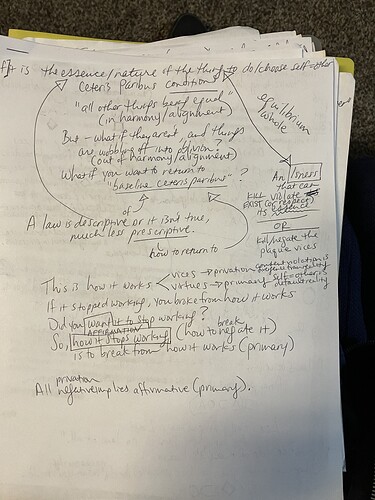 If it is the essence/nature of the thing to do/choose self=other
Ceteris Paribus condition
"all other things being equal"
(in harmony/alignment)
equilibrium
whole
But - what if they aren't, and things
are wobbling off into oblivion?
(out of harmony/alignment)
What if you want to return to
"baseline ceteris paribus"?
An isness
that can
KILL violate
EXIST (or respect)
its
OR
kill/negate the
plaque vices
of
A law is descriptive or it isn't true,
much less prescriptive.
how to return to
This is how it works
vices → privation
content violation is
virtues → primary
self=other is
default reality
If it stopped working, you broke from how it works
Did you want it to stop working?
AFFIRMATION
So, how it stops working (how to negate it)
break
is to break from how it works (primary)
privation
All negative implies affirmative (primary).